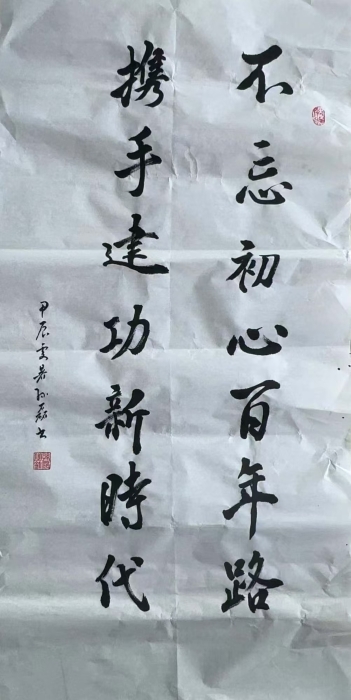 不忘初心百年路
携手建功新時代
甲辰